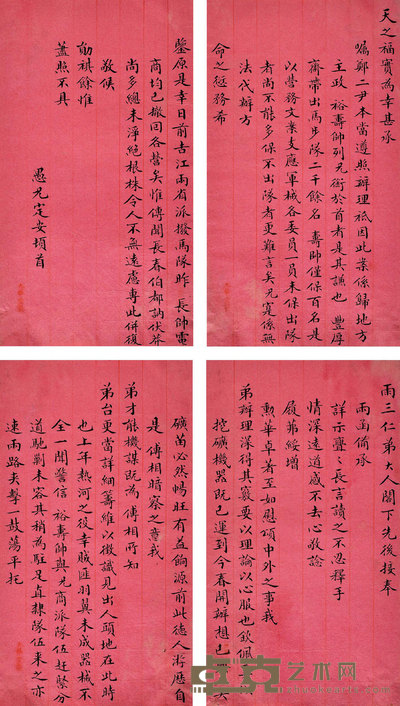 雨三仁弟大人閣下先後接奉
兩函備承
詳示亹亹長言讀之不忍釋手
情深遠道感不去心敬諗
履茀綏增
勲華卓著至如慰頌中外之事我
弟辦理深得其竅要以理論以心服也欽佩
挖礦機器既已運到今春開辦想已
礦苗必然暢旺有益餉源前此德人游歷自
是傅相暗察之意我
弟才能機謀既為傅相所知
弟台更當詳細籌維以微識見出人頭地在此時
也上年熱河之役幸賊匪羽翼未成器械不
全一聞警信裕壽帥與兄商派隊伍赶緊分
道馳剿未容其稍為駐足直隸隊伍來之亦
速兩路夾擊一鼓蕩平托
天之福實為幸甚承
囑鄭二尹本當遵照辦理祗因此案係歸地方
主政裕壽帥列兄銜於首者是其謙也豐厚
齋帶出馬步隊二千餘名壽帥僅保百名是
以營務文案支應軍械各委員一員未保出隊
者尚不能多保不出隊者更難言矣兄寔係無
法代辦方
命之愆務希
鑒原是幸日前吉江兩省派撥馬隊昨長帥電
商均已撤回各營矣惟傳聞長春伯都訥伏莽
尚多總未淨絕根株令人不無遠慮專此佈復
敬候
勛祺餘惟
藎照不具
愚兄定安頓首
艺术网